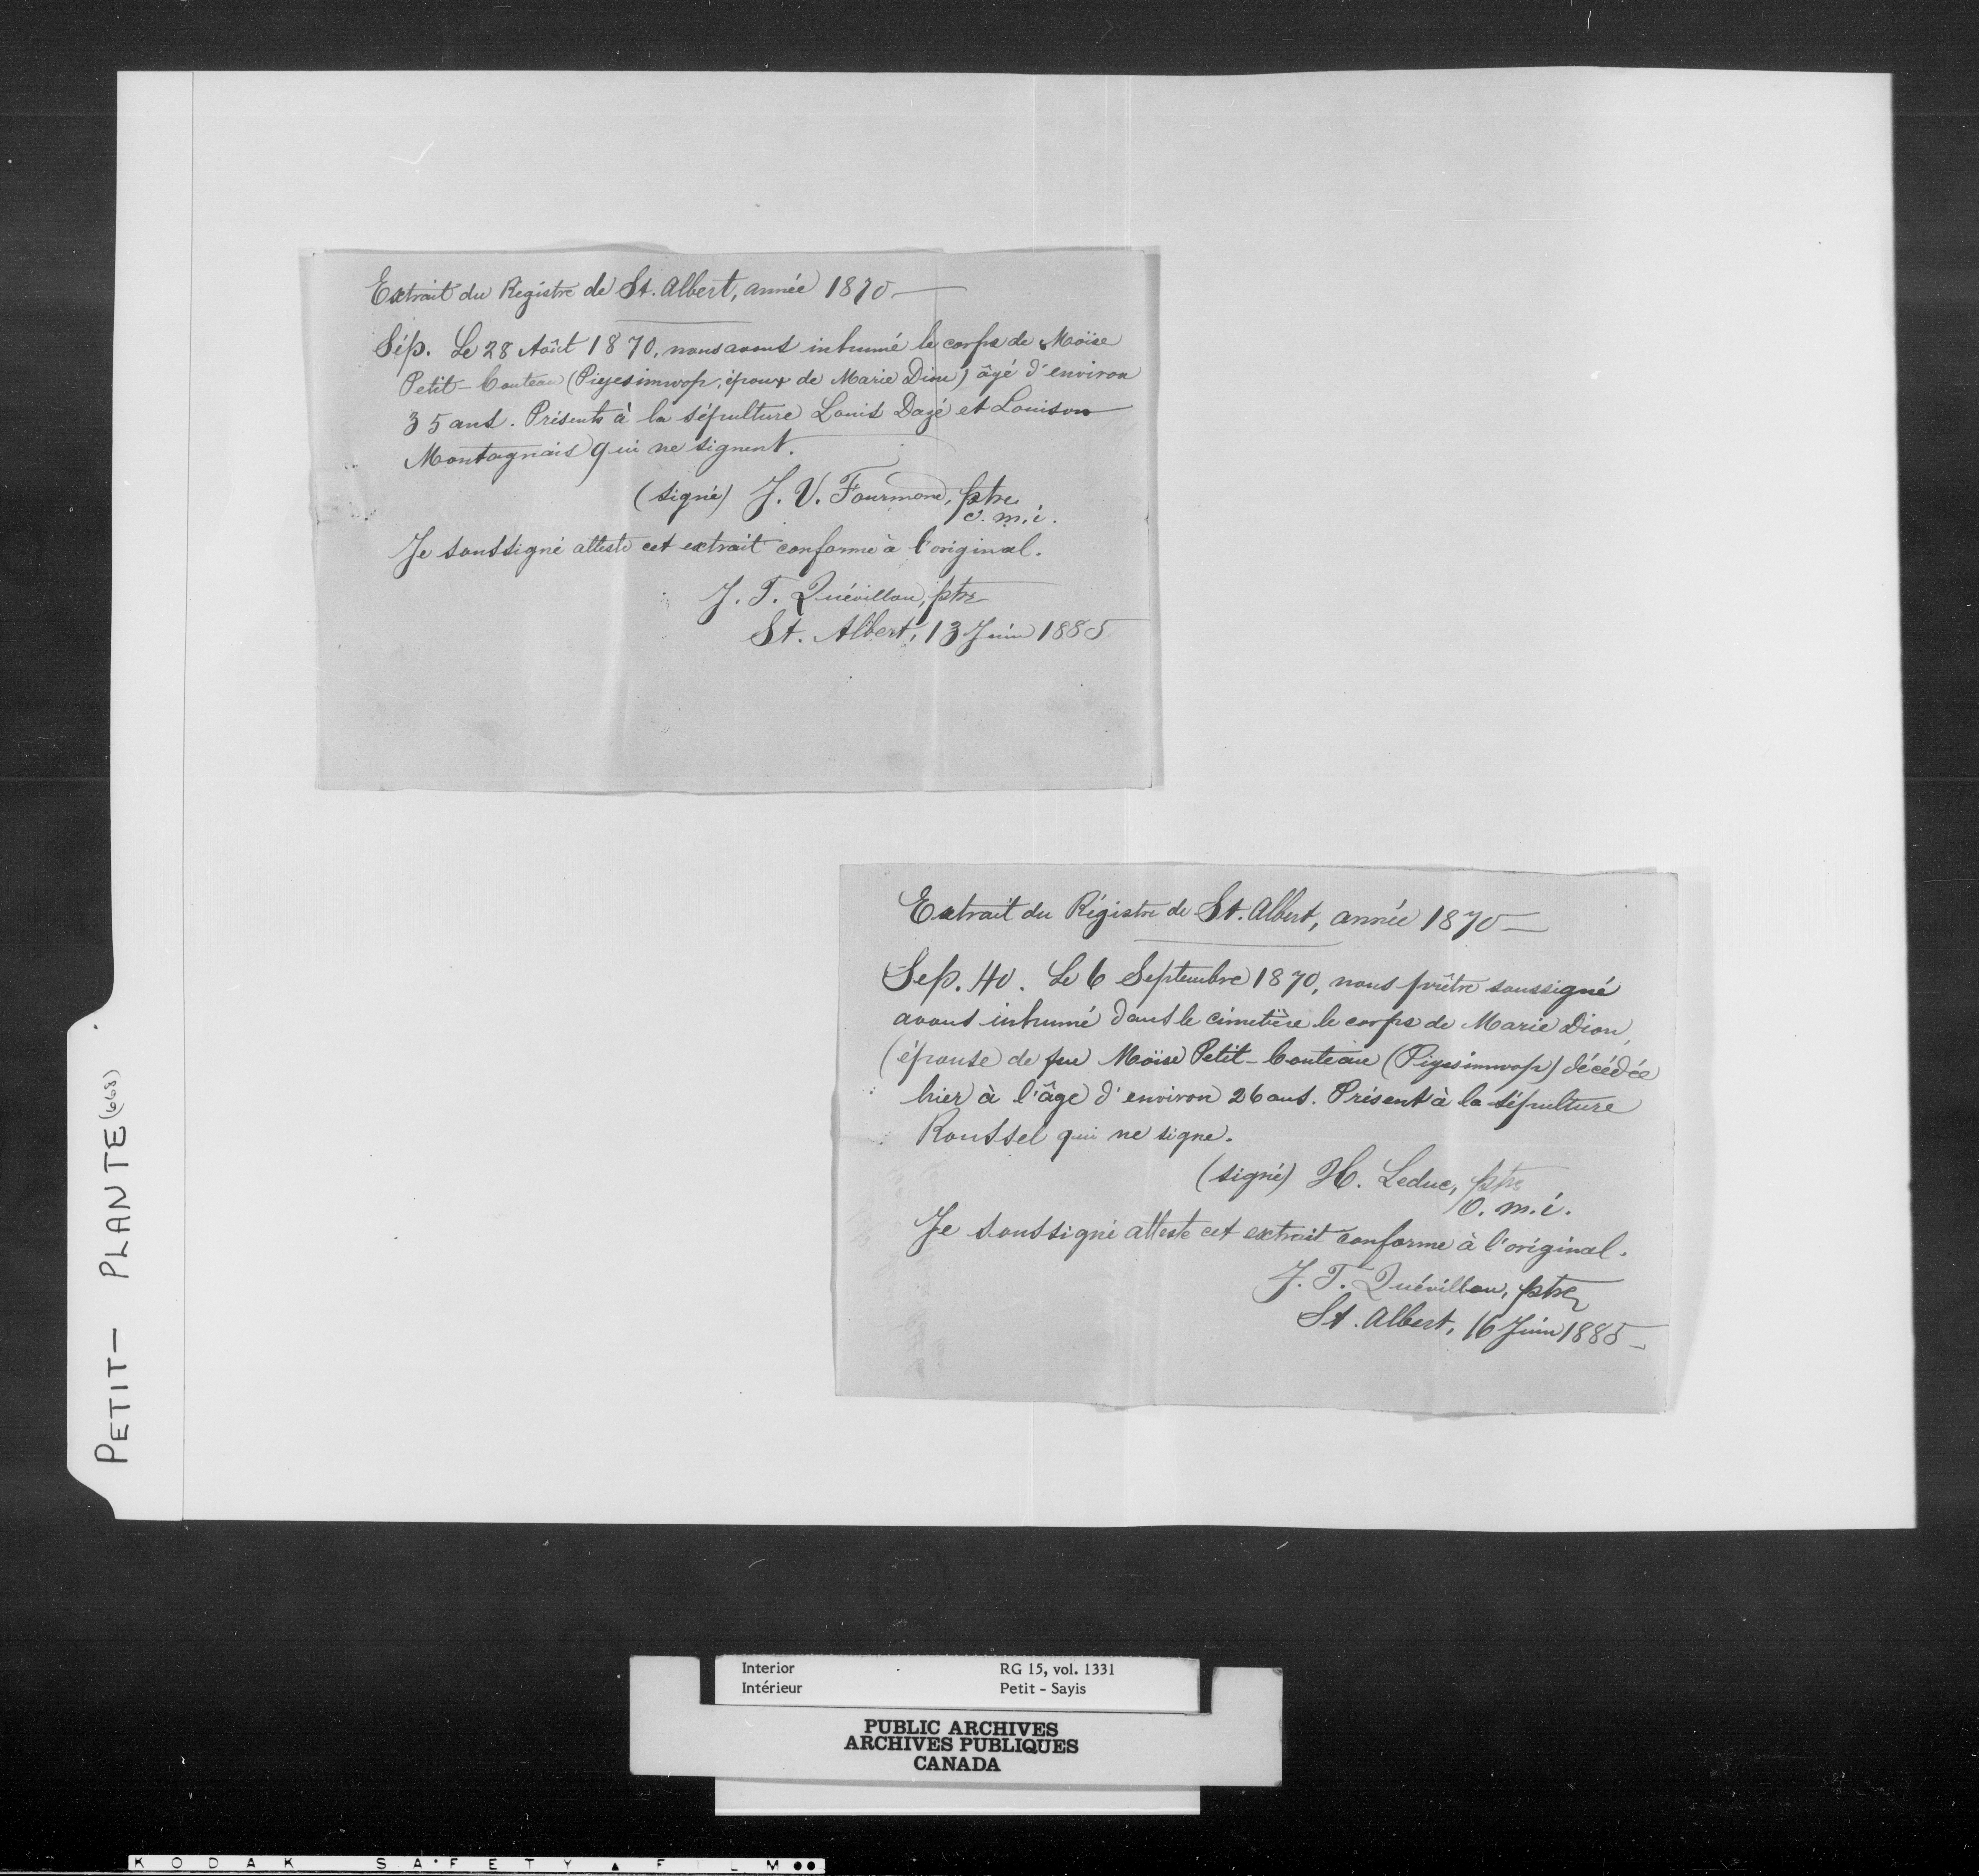 Extrait du Régistre de St. Albert, année 1870 —
Sép. Le 28 Août 1870, nous avons inhumé le corps de Moïse
Petit-Couteau (Piyesimwop, époux de Marie Dion) âgé d'environ
35 ans. Présents à la sépulture Louis Dazé et Louison
Montagnais qui ne signent.
(signé) J. V. Fourmond, ptre
o.m.i.
Je soussigné atteste cet extrait conforme à l'original.
J. T. Quévillon, ptre
St. Albert, 13 Juin 1885
Extrait du Régistre de St. Albert, année 1870 —
Sep. 40. Le 6 Septembre 1870, nous prêtre soussigné
avons inhumé dans le cimetière le corps de Marie Dion,
(épouse de feu Moïse Petit-Couteau (Piyesimwop) décédée
hier à l'âge d'environ 26 ans. Présent à la sépulture
Roussel qui ne signe.
(signé) H. Leduc, ptre
O.m.i.
Je soussigné atteste cet extrait conforme à l'original.
J. T. Quévillon, ptre
St. Albert, 16 Juin 1885 —
PETIT — PLANTE (668)
Interior RG 15, vol. 1331
Intérieur Petit - Sayis
PUBLIC ARCHIVES
ARCHIVES PUBLIQUES
CANADA
KODAK SAFETY ▲ FILM ●●